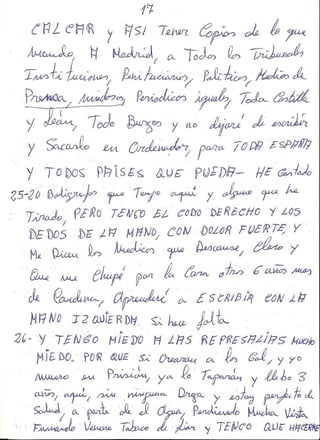 17
CALCAR y ASI Tener Copias de lo que
Mando, A Madrid, a Todos los Tribunales
Instituciones, Penitenciarios, Politicos, Medios de
Prensa, mismos, Periodicos iguales, Toda Castilla
y León, Todo Burgos y no dejaré de escribir
y Sacarlo en Ordenador, para TODA ESPAÑA
Y TODOS PAÍSES QUE PUEDA- HE Gastado
25-20 Boligrafos que Tengo aqui y alguno que he
Tirado, PERO TENGO EL CODO DERECHO Y LOS
DEDOS DE LA MANO, CON DOLOR FUERTE, Y
Me Dicen los Medicos que Descanse, Claro y
Que me Chupé por la Cara otros 6 años mas
de Condena, Aprenderé a ESCRIBIR CON LA
MANO IZQUIERDA Si hace falta
26- Y TENGO MIEDO A LAS REPRESALIAS MUCHO
MIEDO. POR QUE Si Crearan a los Gal, y yo
muero en Prisión, ya lo Taparán y llebo 3
años, aqui, sin ninguna Droga y estoy perfecto de
Salud, a parte de el Agua, Perdiendo Mucha Vista
Fumando Veneno Tabaco de Liar y TENGO QUE HACERME